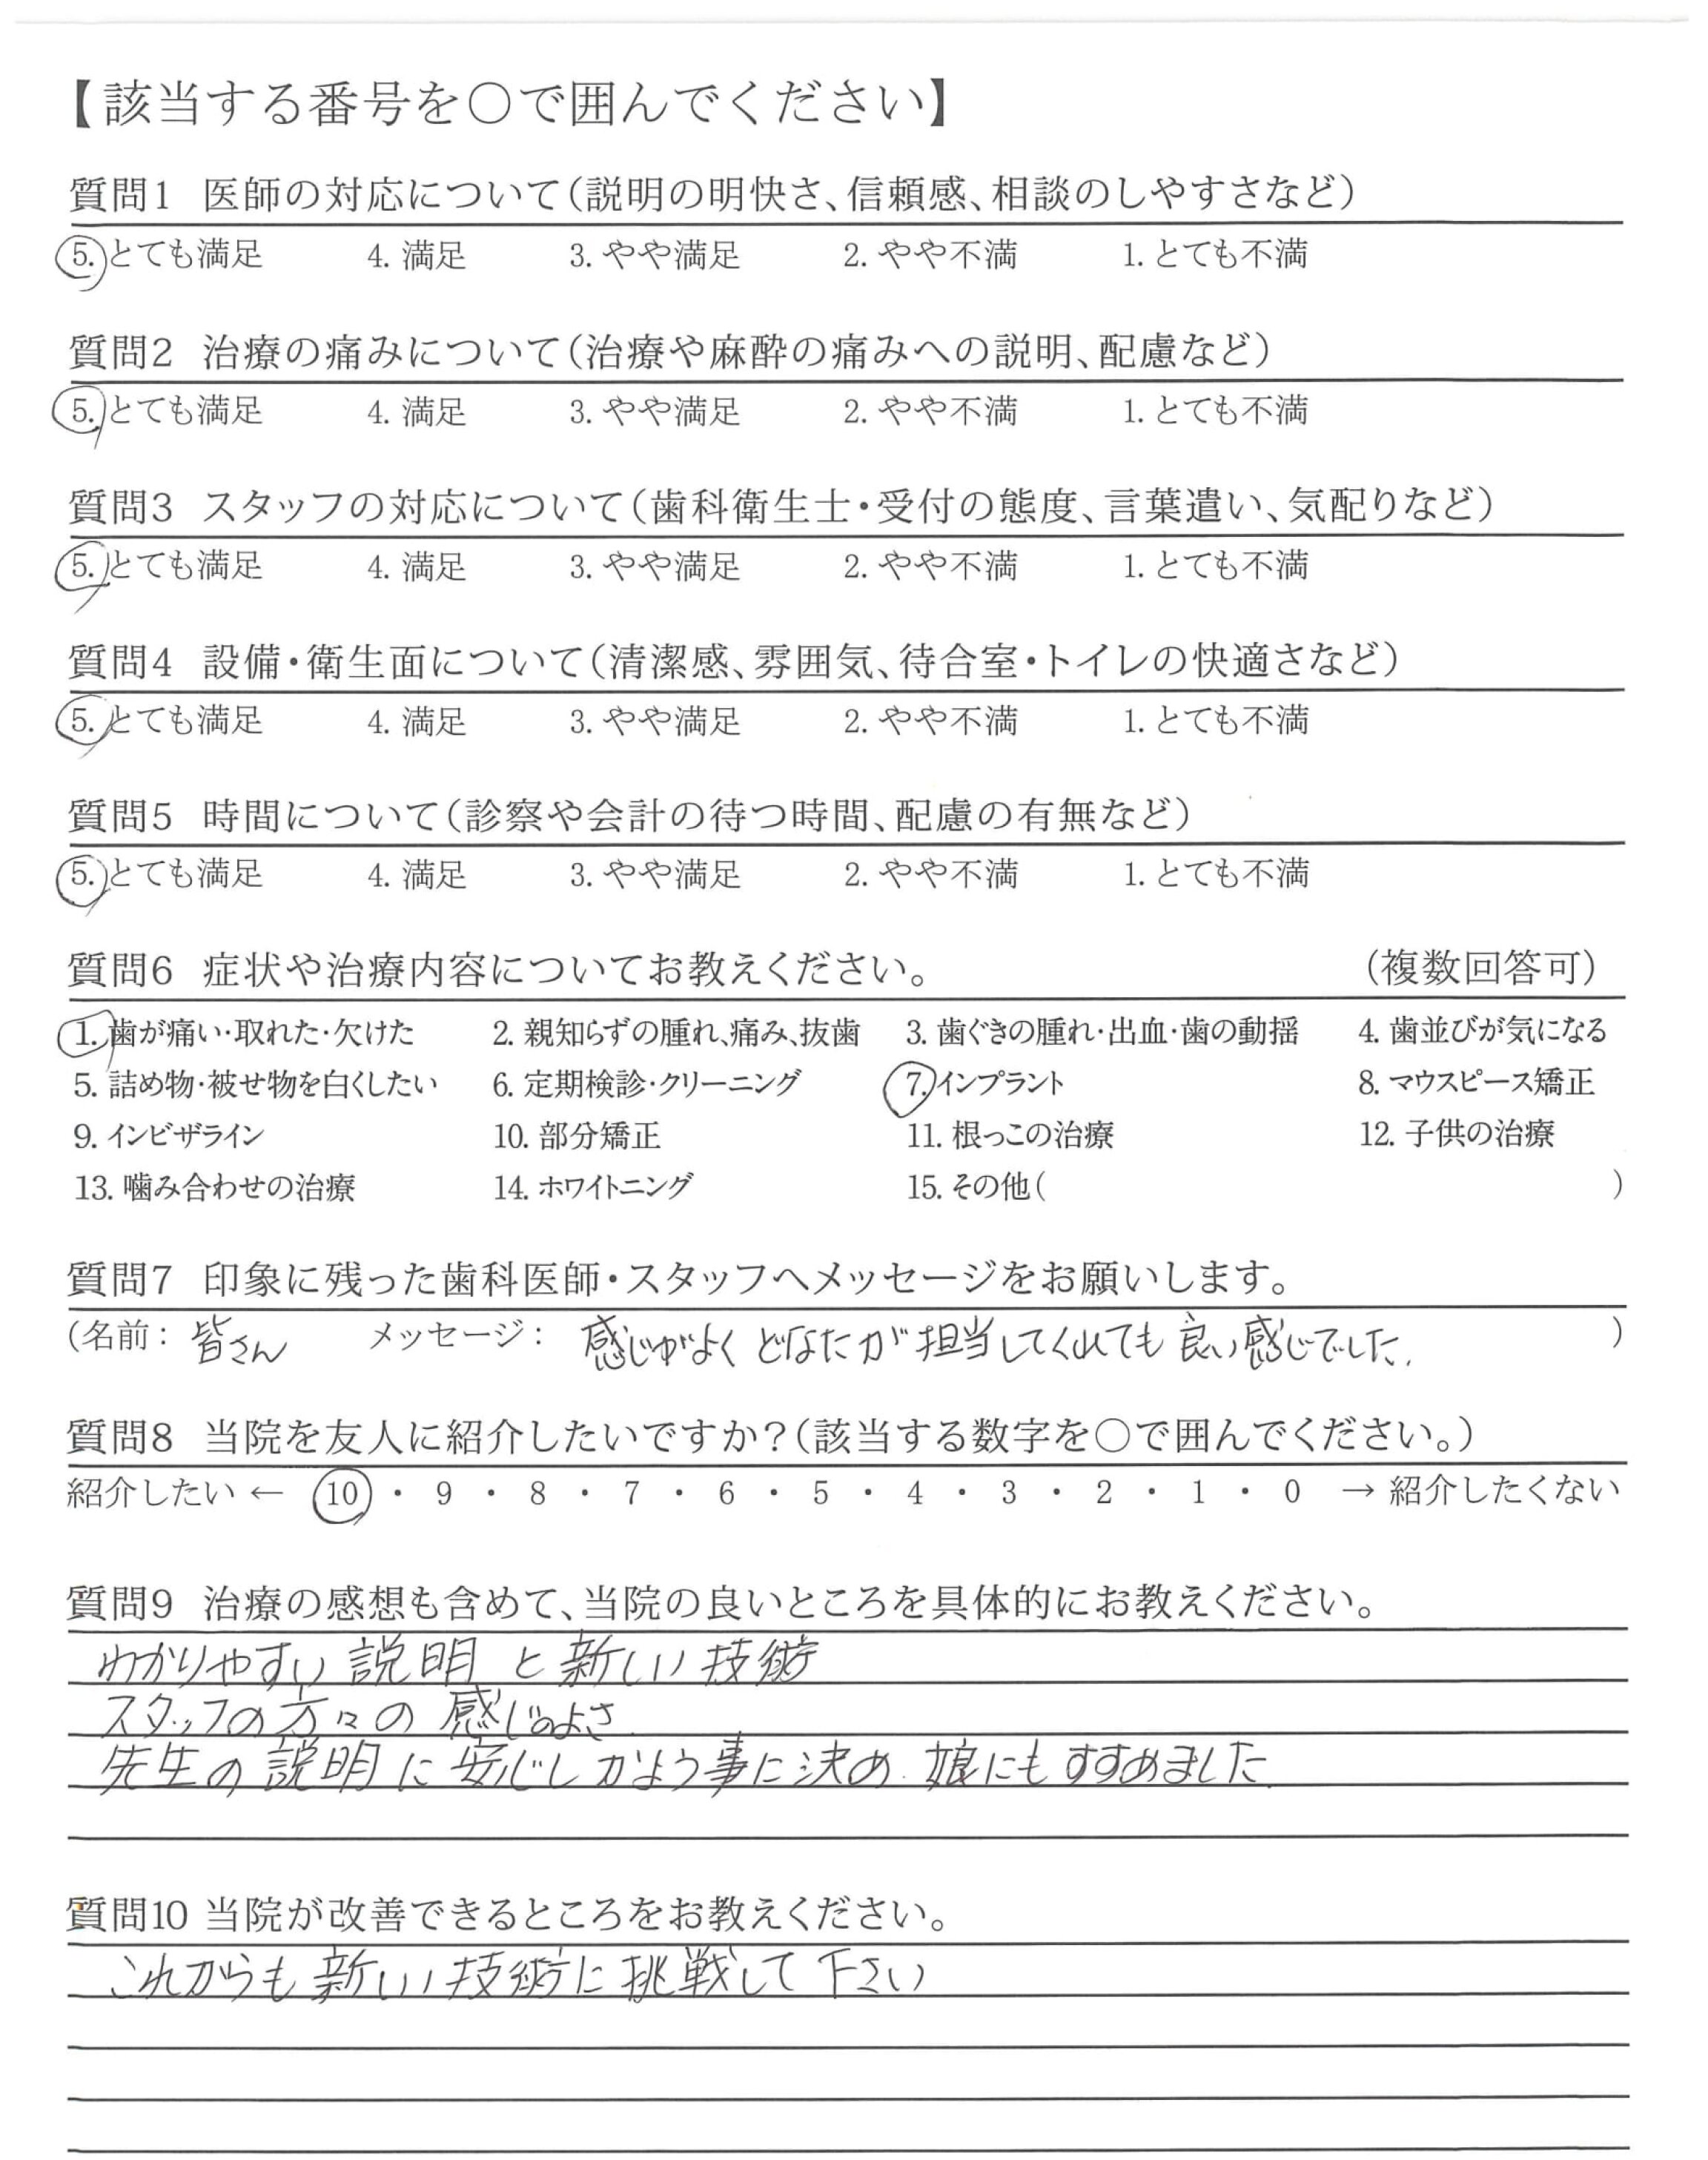 【該当する番号を〇で囲んでください】
質問1 医師の対応について(説明の明快さ、信頼感、相談のしやすさなど)
5. とても満足 4. 満足 3. やや満足 2. やや不満 1. とても不満
質問2 治療の痛みについて(治療や麻酔の痛みへの説明、配慮など)
5. とても満足 4. 満足 3. やや満足 2. やや不満 1. とても不満
質問3 スタッフの対応について(歯科衛生士・受付の態度、言葉遣い、気配りなど)
5. とても満足 4. 満足 3. やや満足 2. やや不満 1. とても不満
質問4 設備・衛生面について(清潔感、雰囲気、待合室・トイレの快適さなど)
5. とても満足 4. 満足 3. やや満足 2. やや不満 1. とても不満
質問5 時間について(診察や会計の待つ時間、配慮の有無など)
5. とても満足 4. 満足 3. やや満足 2. やや不満 1. とても不満
質問6 症状や治療内容についてお教えください。 (複数回答可)
1. 歯が痛い・取れた・欠けた 2. 親知らずの腫れ、痛み、抜歯 3. 歯ぐきの腫れ・出血・歯の動揺 4. 歯並びが気になる
5. 詰め物・被せ物を白くしたい 6. 定期検診・クリーニング 7. インプラント 8. マウスピース矯正
9. インビザライン 10. 部分矯正 11. 根っこの治療 12. 子供の治療
13. 噛み合わせの治療 14. ホワイトニング 15. その他( )
質問7 印象に残った歯科医師・スタッフへメッセージをお願いします。
(名前: 皆さん メッセージ: 感じがよく どなたが担当してくれても 良い感じでした. )
質問8 当院を友人に紹介したいですか?(該当する数字を〇で囲んでください。)
紹介したい ← 10 ・ 9 ・ 8 ・ 7 ・ 6 ・ 5 ・ 4 ・ 3 ・ 2 ・ 1 ・ 0 → 紹介したくない
質問9 治療の感想も含めて、当院の良いところを具体的にお教えください。
わかりやすい 説明 と 新しい 技術
スタッフの方々の 感じのよさ
先生の 説明に 安じし かよう事に決め 娘にもすすめました.
質問10 当院が改善できるところをお教えください。
これからも 新しい 技術に 挑戦して 下さい